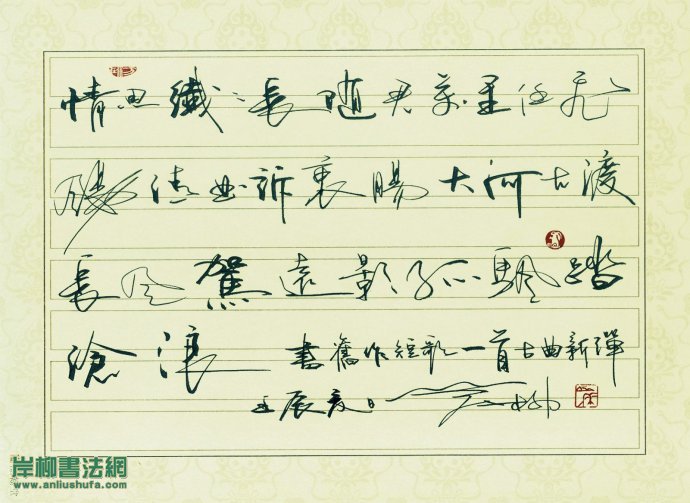 情思纖纖長随君萬里任飛
殤清曲訴衷腸大河古渡
長風駕遠影孤飄踏
滄浪 書舊作短歌一首古曲新彈
壬辰夏日
岸柳書法網
www.anliushufa.com